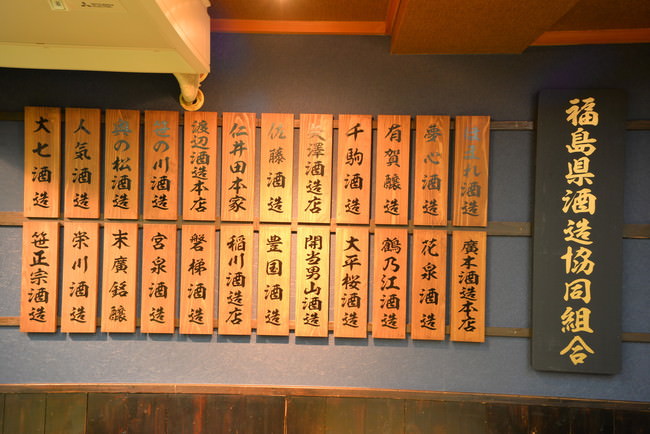 福島県酒造協同組合
ほまれ酒造
夢心酒造
有賀醸造
千駒酒造
大澤酒造店
佐藤酒造
仁井田本家
渡辺酒造本店
笹の川酒造
奥の松酒造
人気酒造
大七酒造
廣木酒造本店
花泉酒造
鶴乃江酒造
大平桜酒造
開当男山酒造
豊国酒造
稲川酒造店
磐梯酒造
宮泉酒造
末廣銘醸
栄川酒造
笹正宗酒造